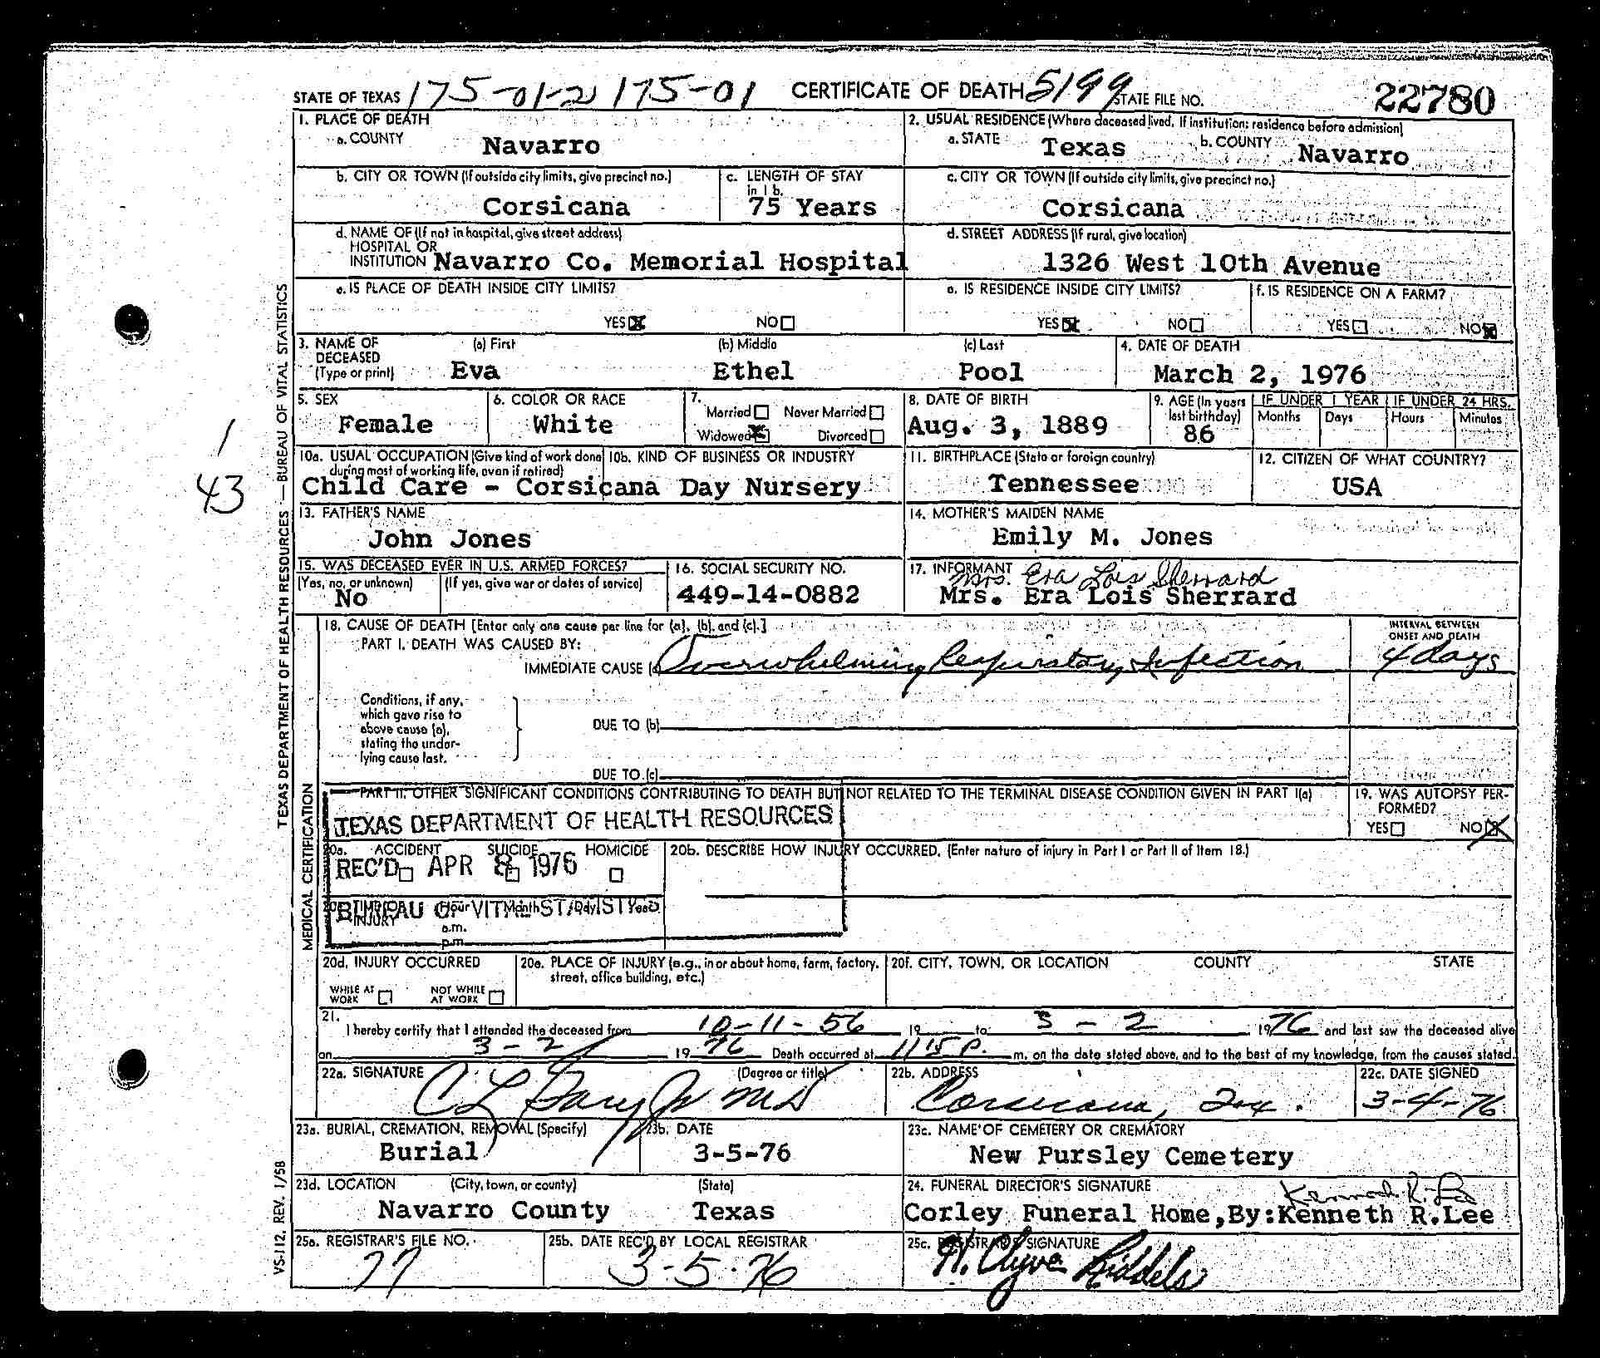 STATE OF TEXAS 175-01-2 175-01 CERTIFICATE OF DEATH 5199 STATE FILE NO. 22780
1. PLACE OF DEATH
a. COUNTY Navarro
2. USUAL RESIDENCE (Where deceased lived. If institution: residence before admission)
a. STATE Texas b. COUNTY Navarro
b. CITY OR TOWN (If outside city limits, give precinct no.) Corsicana
c. LENGTH OF STAY in 1 b. 75 Years
c. CITY OR TOWN (If outside city limits, give precinct no.) Corsicana
d. NAME OF (If not in hospital, give street address) HOSPITAL OR INSTITUTION Navarro Co. Memorial Hospital
d. STREET ADDRESS (If rural, give location) 1326 West 10th Avenue
e. IS PLACE OF DEATH INSIDE CITY LIMITS? YES NO
e. IS RESIDENCE INSIDE CITY LIMITS? YES NO
f. IS RESIDENCE ON A FARM? YES NO
3. NAME OF DECEASED (Type or print) (a) First Eva (b) Middle Ethel (c) Last Pool
4. DATE OF DEATH March 2, 1976
5. SEX Female
6. COLOR OR RACE White
7. Married Never Married Widowed Divorced
8. DATE OF BIRTH Aug. 3, 1889
9. AGE (In years last birthday) 86
IF UNDER 1 YEAR Months Days
IF UNDER 24 HRS. Hours Minutes
10a. USUAL OCCUPATION (Give kind of work done during most of working life, even if retired) 10b. KIND OF BUSINESS OR INDUSTRY
Child Care - Corsicana Day Nursery
11. BIRTHPLACE (State or foreign country) Tennessee
12. CITIZEN OF WHAT COUNTRY? USA
13. FATHER'S NAME John Jones
14. MOTHER'S MAIDEN NAME Emily M. Jones
15. WAS DECEASED EVER IN U.S. ARMED FORCES? (Yes, no, or unknown) No (If yes, give war or dates of service)
16. SOCIAL SECURITY NO. 449-14-0882
17. INFORMANT Mrs. Era Lois Sherrard
Mrs. Era Lois Sherrard
18. CAUSE OF DEATH [Enter only one cause per line for (a), (b), and (c).]
PART I. DEATH WAS CAUSED BY:
IMMEDIATE CAUSE (a) Overwhelming Respiratory Infection
INTERVAL BETWEEN ONSET AND DEATH 4 days
Conditions, if any, which gave rise to above cause (a), stating the under-lying cause last.
DUE TO (b)
DUE TO (c)
PART II. OTHER SIGNIFICANT CONDITIONS CONTRIBUTING TO DEATH BUT NOT RELATED TO THE TERMINAL DISEASE CONDITION GIVEN IN PART I(a)
19. WAS AUTOPSY PERFORMED? YES NO
TEXAS DEPARTMENT OF HEALTH RESOURCES
REC'D APR 8 1976
BUREAU OF VITAL STATISTICS
20a. ACCIDENT SUICIDE HOMICIDE
20b. DESCRIBE HOW INJURY OCCURRED. (Enter nature of injury in Part I or Part II of Item 18.)
INJURY Hour Month Day Year
a.m.
p.m.
20d. INJURY OCCURRED WHILE AT WORK NOT WHILE AT WORK
20e. PLACE OF INJURY (e.g., in or about home, farm, factory, street, office building, etc.)
20f. CITY, TOWN, OR LOCATION COUNTY STATE
21. I hereby certify that I attended the deceased from 10-11-56 19 to 3-2 1976 and last saw the deceased alive
on 3-2 19 76 Death occurred at 115 P. m, on the date stated above, and to the best of my knowledge, from the causes stated.
22a. SIGNATURE (Degree or title) C L Gary Jr MD
22b. ADDRESS Corsicana, Tex.
22c. DATE SIGNED 3-4-76
23a. BURIAL, CREMATION, REMOVAL (Specify) Burial
23b. DATE 3-5-76
23c. NAME OF CEMETERY OR CREMATORY New Pursley Cemetery
23d. LOCATION (City, town, or county) Navarro County (State) Texas
24. FUNERAL DIRECTOR'S SIGNATURE Kenneth R. Lee
Corley Funeral Home, By: Kenneth R. Lee
25a. REGISTRAR'S FILE NO. 77
25b. DATE REC'D BY LOCAL REGISTRAR 3-5-76
25c. REGISTRAR'S SIGNATURE
1
43
TEXAS DEPARTMENT OF HEALTH RESOURCES — BUREAU OF VITAL STATISTICS
MEDICAL CERTIFICATION
VS-112, REV. 1/58